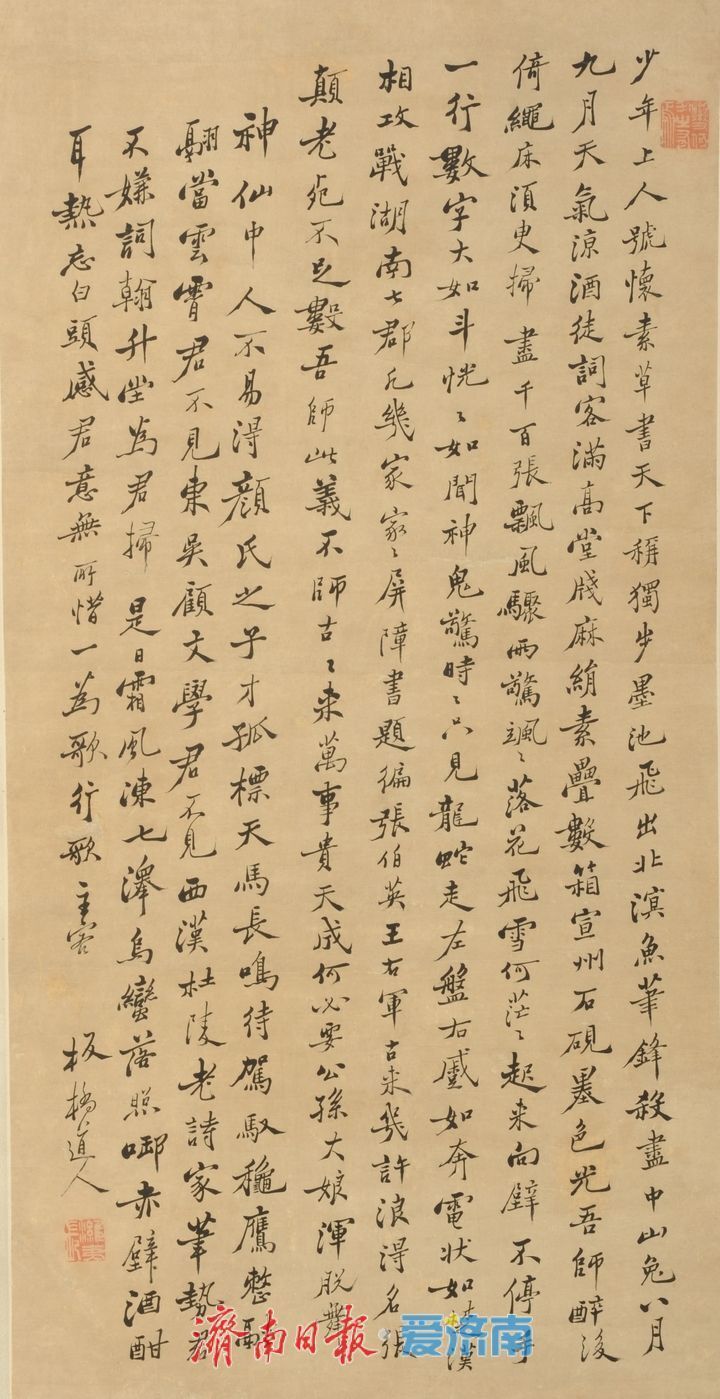 少年上人號懷素草書天下稱獨步墨池飛出北溟魚筆鋒殺盡中山兔八月
九月天氣涼酒徒詞客滿高堂牋麻絹素疊數箱宣州石硯墨色光吾師醉後
倚繩床須臾掃盡千百張飄風驟雨驚颯〻落花飛雪何茫〻起來向壁不停手
一行數字大如斗恍〻如聞神鬼驚時〻只見龍蛇走左盤右蹙如奔電狀如楚漢
相攻戰湖南七郡凡幾家家〻屏障書題徧張伯英王右軍古來幾許浪得名張
顛老死不足數吾師此義不師古〻來萬事貴天成何必要公孫大娘渾脫舞
神仙中人不易得顏氏之子才孤標天馬長鳴待駕馭穐鷹整翮
翮當雲霄君不見東吳顧文學君不見西漢杜陵老詩家筆勢君
不嫌詞翰升堂為君掃是日霜風凍七澤烏蠻落照啣赤壁酒酣
耳熱忘白頭感君意無所惜一為歌行歌主客 板橋道人
濟南日報 爱济南